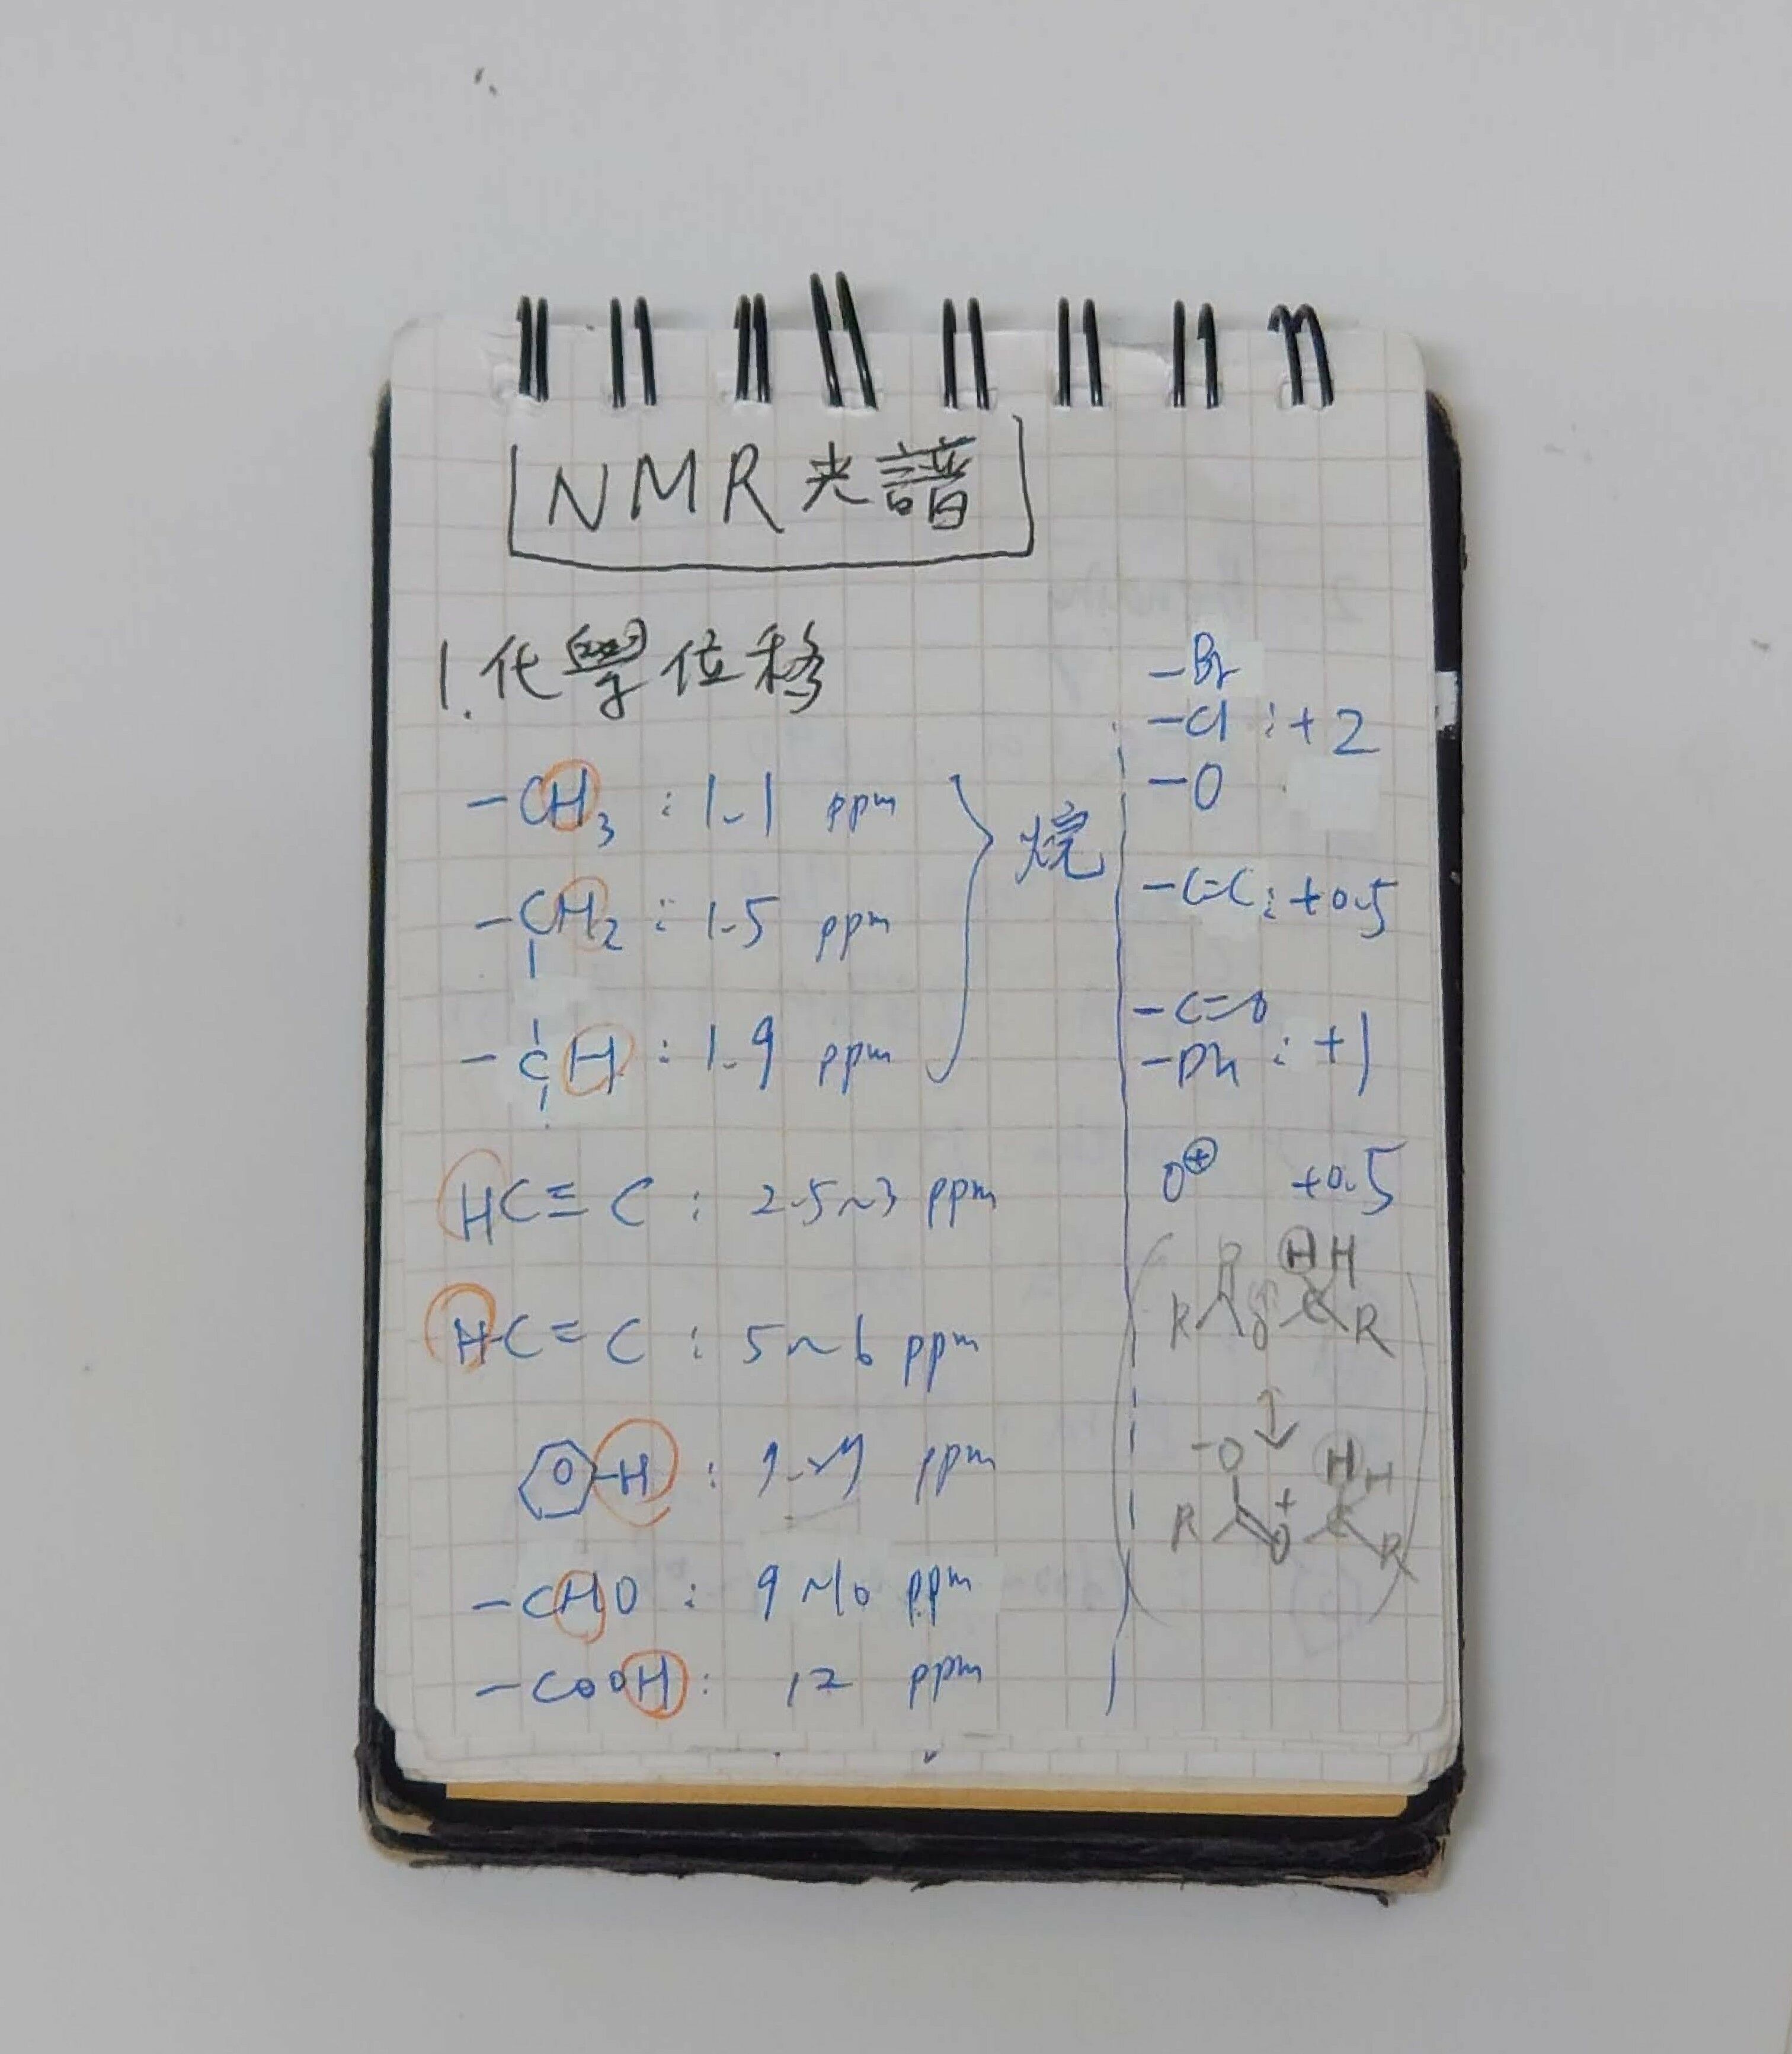 NMR 光譜
1. 化學位移
-CH3 : 1.1 ppm
-CH2 : 1.5 ppm
-CH : 1.9 ppm
烷
HC≡C : 2.5~3 ppm
HC=C : 5~6 ppm
-H : ppm
-CHO : 9~10 ppm
-COOH : 12 ppm
-Br
-Cl : +2
-O
-C=C : +0.5
-C=O
-Ph : +1
O⊕ +0.5
O H H
R O C R
-O H H
R O + C R